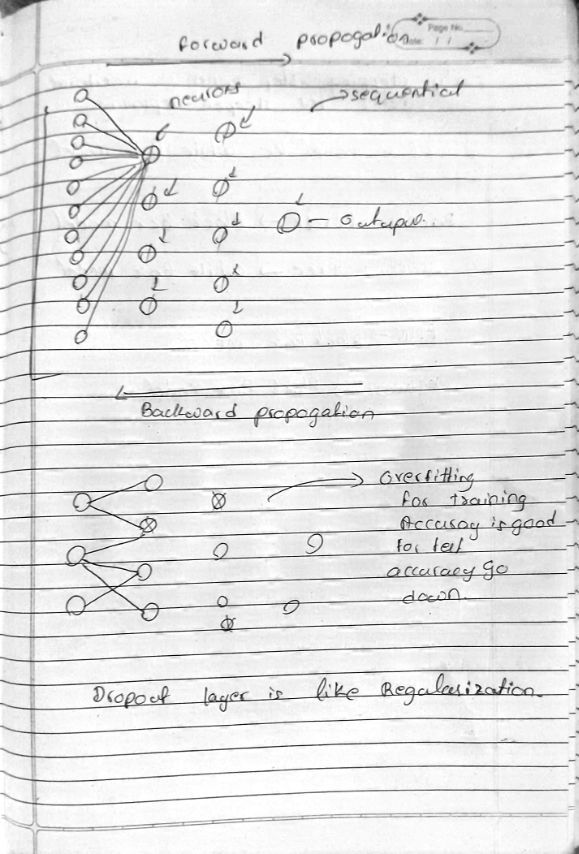 Page No.
Date: / /
forward propogation
neurons
sequential
output.
Backward propogation
overfitting
for training
Accuracy is good
for test
accuracy go
down.
Dropout layer is like Regularization.